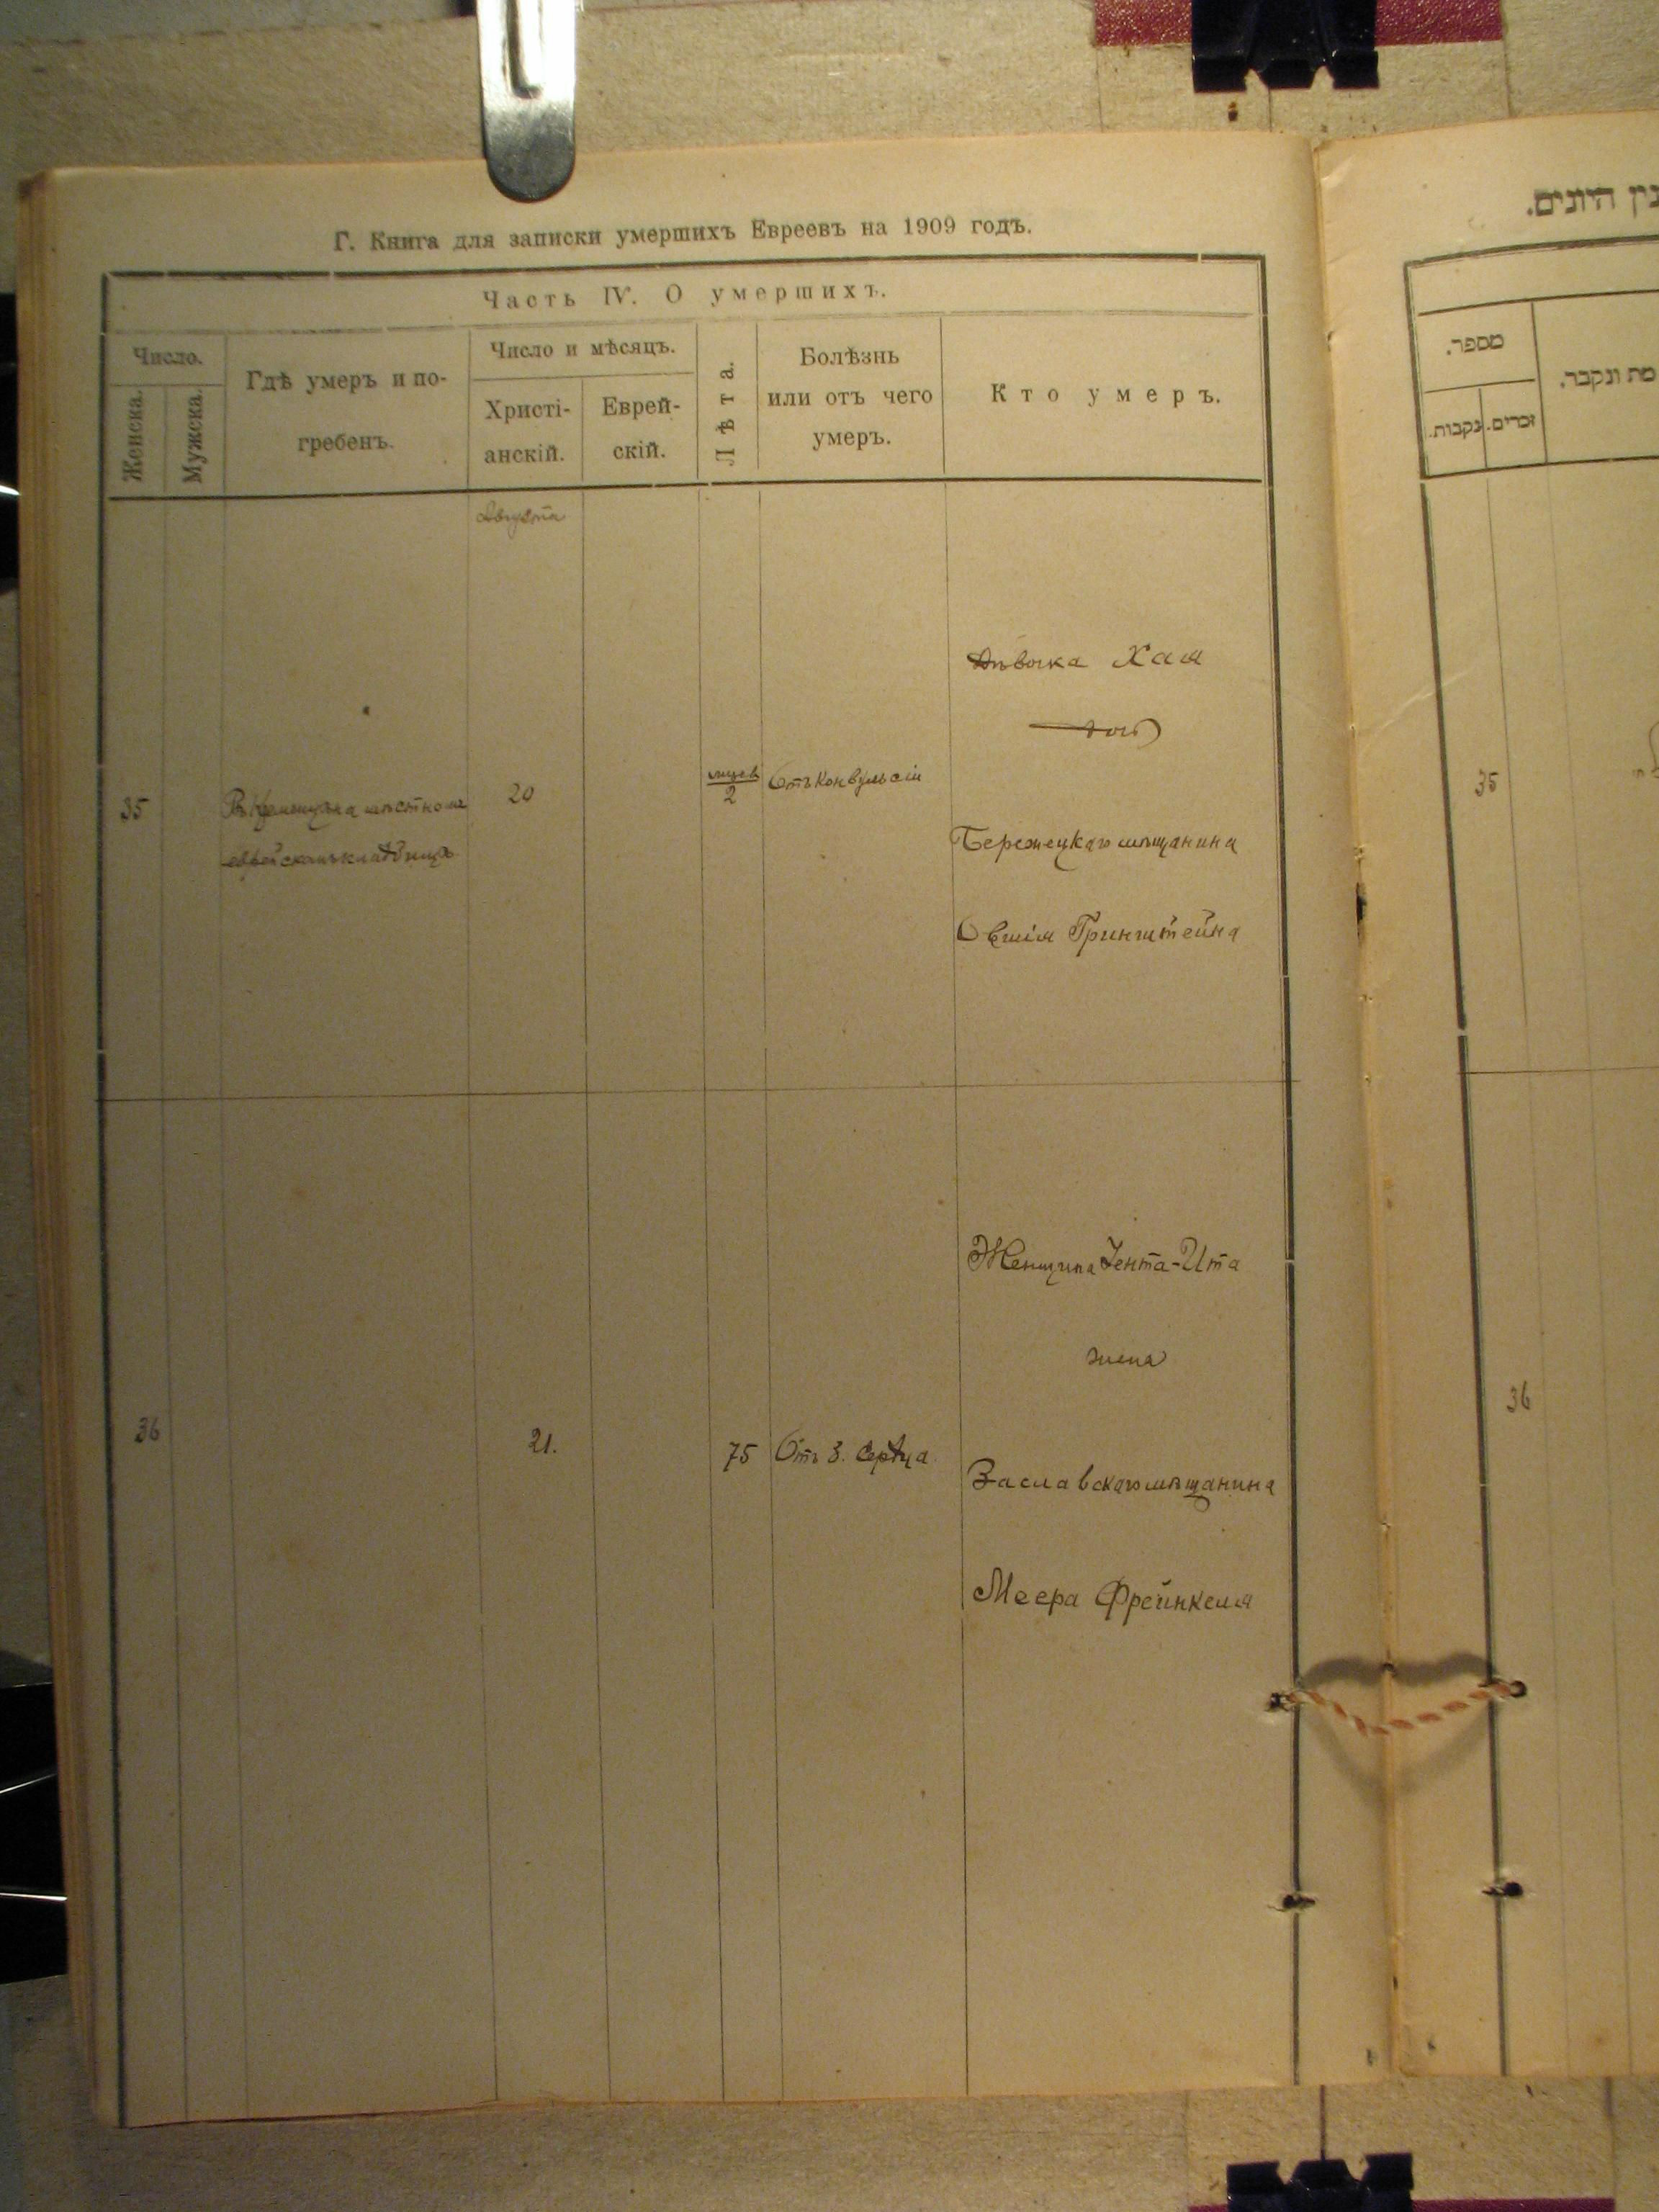 Г. Книга для записки умершихъ Евреевъ на 1909 годъ.
Часть IV. О умершихъ.
Число.
Женска.
Мужска.
Гдѣ умеръ и по-
гребенъ.
Число и мѣсяцъ.
Христі-
анскій.
Еврей-
скій.
Лѣта.
Болѣзнь
или отъ чего
умеръ.
Кто умеръ.
Августа
35
на мѣстномъ
еврейскомъ кладбищѣ
20
мцев
2
Отъ конвульсіи
Дѣвочка Хая
дочь
Бережецкаго мѣщанина
Овшія Гринштейна
36
21.
75
Отъ З. Сердца
Женщина Ента-Ита
жена
Заславскаго мѣщанина
Меера Фрейнкеля
מספר.
זכרים.
נקבות.
מת ונקבר.
35
36